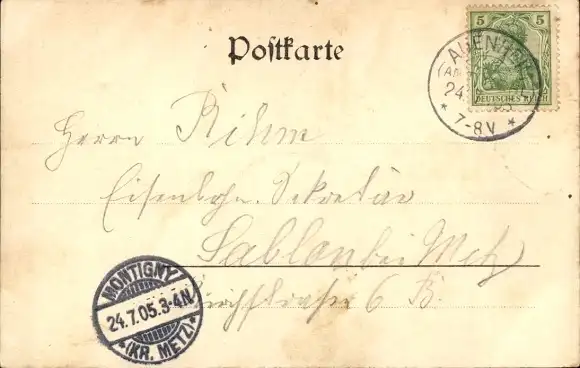 Postkarte
5 5
DEUTSCHES REICH
24.
* 7-8V *
Herrn Rihm
Eisenbahn-Sekretär
Sablon bei Metz
6 B.
MONTIGNY
24.7.05.3-4N
*(KR. METZ)*